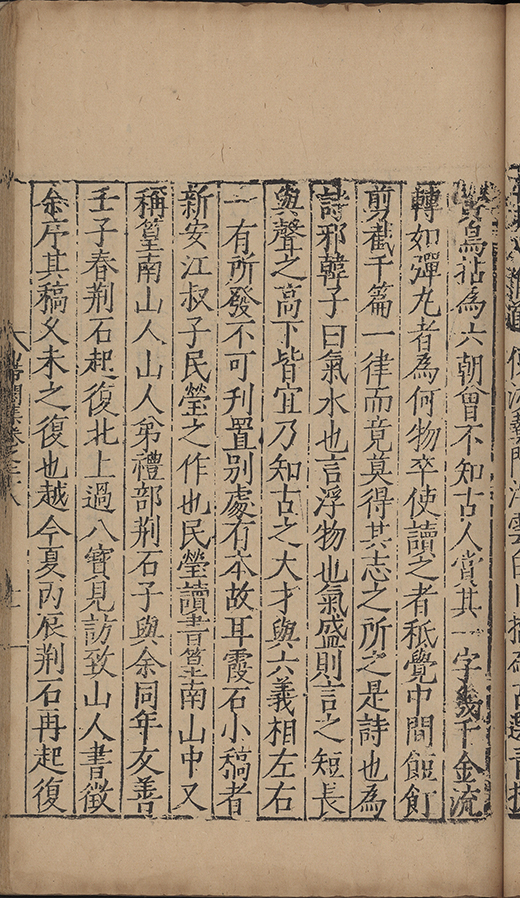 鳥站為六朝曾不知古人當其一字幾千金流
轉如彈丸者為何物卒使讀之者秪覺中間餖飣
剪截千篇一律而竟莫得其志之所之是詩也為
詩邪韓子曰氣水也言浮物也氣盛則言之短長
與聲之高下皆宜乃知古之大才與六義相左右
一有所發不可刊置別處有本故耳霞石小稿者
新安江叔子民瑩之作也民瑩讀書篁南山中又
稱篁南山人山人弟禮部荆石子與余同年友善
壬子春荆石起復北上過八寶見訪致山人書徵
余序其稿久未之復也越今夏丙辰荆石再起復